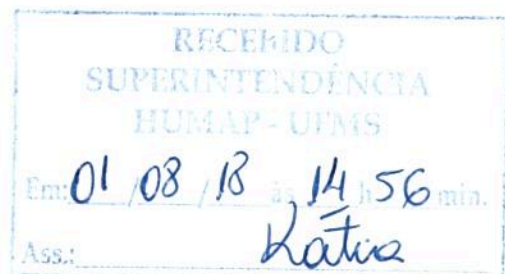 RECEBIDO
SUPERINTENDÊNCIA
HUMAP - UFMS
Em: 01 / 08 / 18 às 14 h 56 min.
Ass.: Kátia